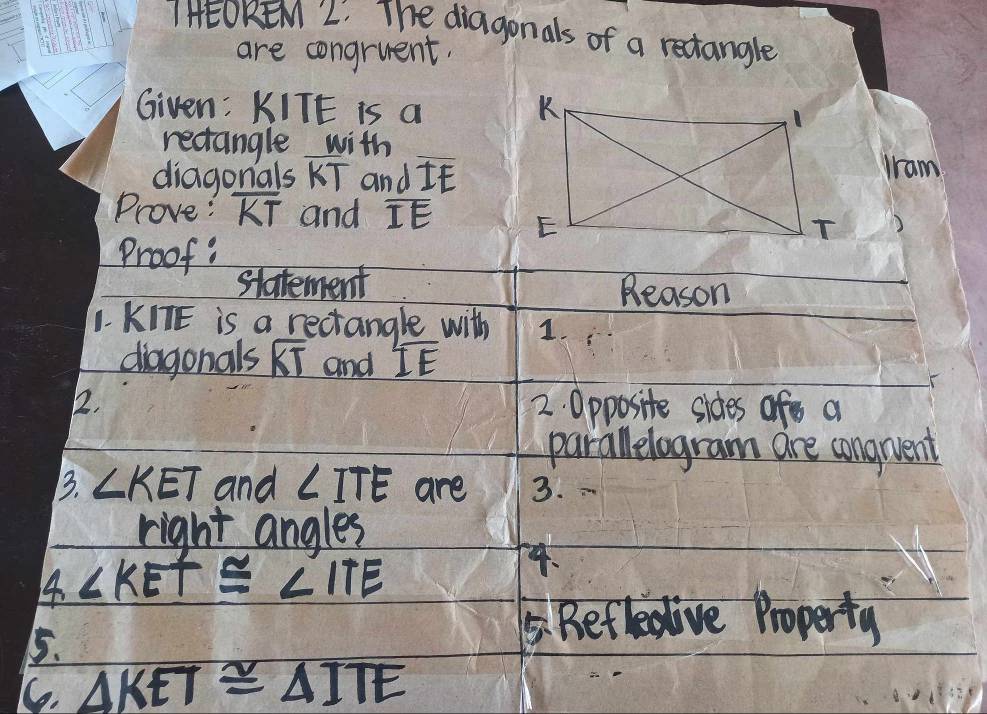 THEOREM 2: The diagonals of a rectangle
are congruent.
Given: KITE is a
rectangle with
diagonals KT and IE
Prove: KT and IE
K
I
E
T
Proof:
Statement
Reason
1. KITE is a rectangle with
diagonals KT and IE
1.
2.
2. Opposite sides of a
parallelogram are congruent
3. ∠KET and ∠ITE are
right angles
3.
4. ∠KET ≅ ∠ITE
4.
5.
5. Reflective Property
6. ΔKET ≅ ΔITE
ram